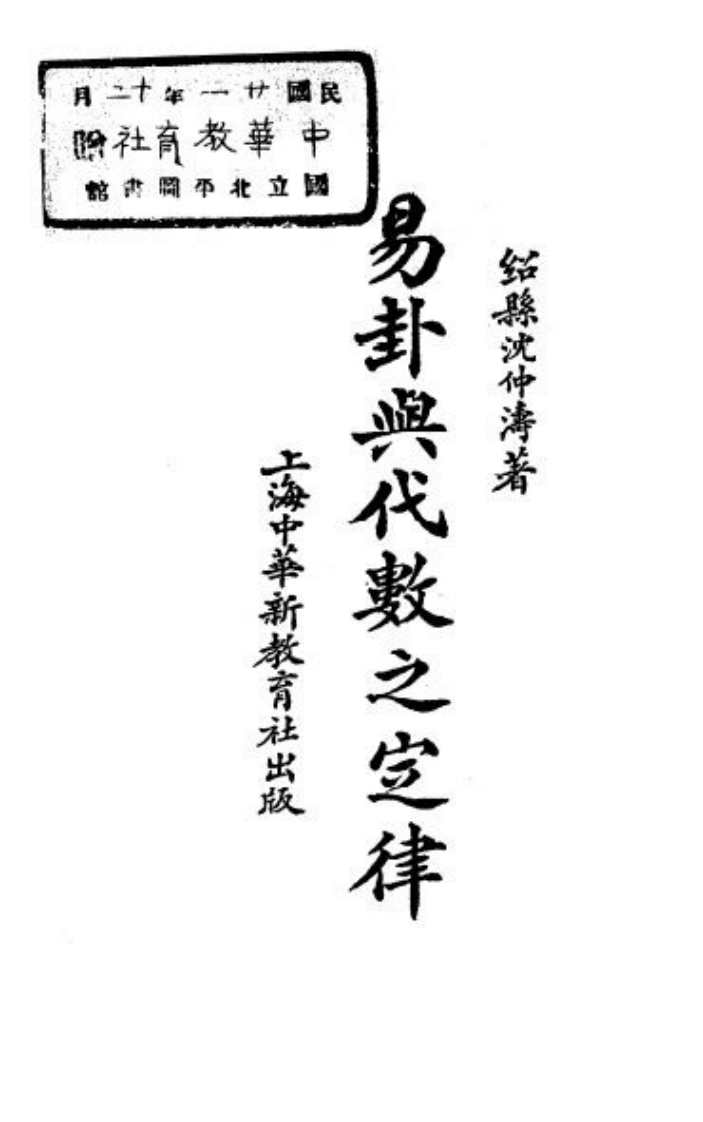 民國廿一年十二月
中華教育社贈
國立北平圖書館
紹縣沈仲濤著
易卦與代數之定律
上海中華新教育社出版